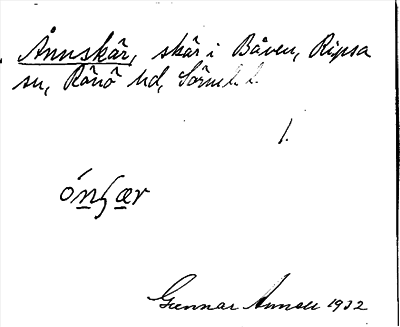 Ånnskär, skär i Båven, Ripsa
sn, Rönö hd, Sörml. l.
1.
ónʃær
Gunnar Annell 1932